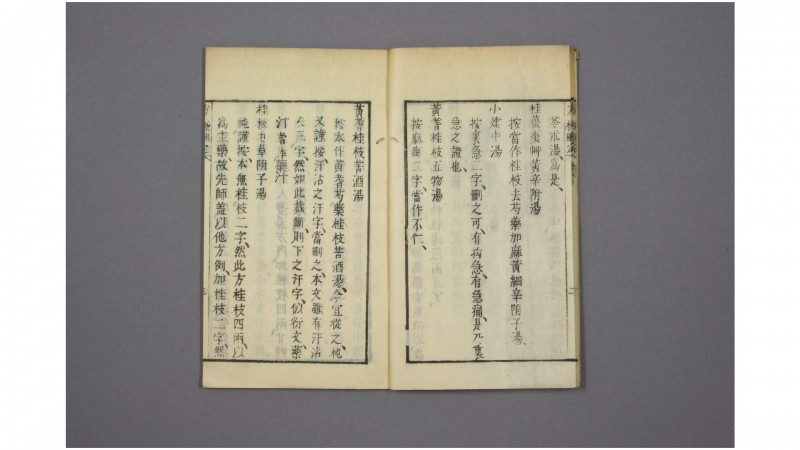 苓朮湯、爲是、
桂薑棗艸黃辛附湯
按當作桂枝去芍藥加麻黃細辛附子湯、
小建中湯
按裏急二字、删之可、有拘急、有急痛、是九裏
急之證也、
黃蓍桂枝五物湯
按麻痺二字、當作不仁、
黃蓍桂枝苦酒湯
按本作黃蓍芍藥桂枝苦酒湯、今宜從之、純
又謹按、汗沾之汗字、當删之、本文雖有汗沾
衣三字、然如此裁斷、則下之汗字、似衍文、藥
汁當作藥汁
桂枝甘草附子湯
純謹按、本無桂枝二字、然此方桂枝四兩、以
爲主藥、故先師蓋以他方例、加桂枝二字、然